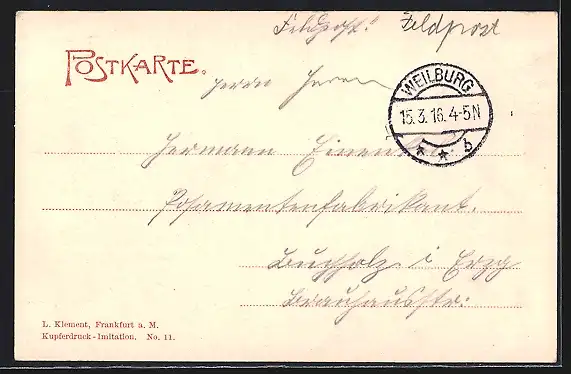 Feldpost! Feldpost
POSTKARTE.
Herrn Herrn
WEILBURG
15.3.16.4-5N
* * b
Hermann
Posamentenfabrikant.
Buchholz i Erzg
Brauhausstr:
L. Klement, Frankfurt a. M.
Kupferdruck-Imitation. No. 11.